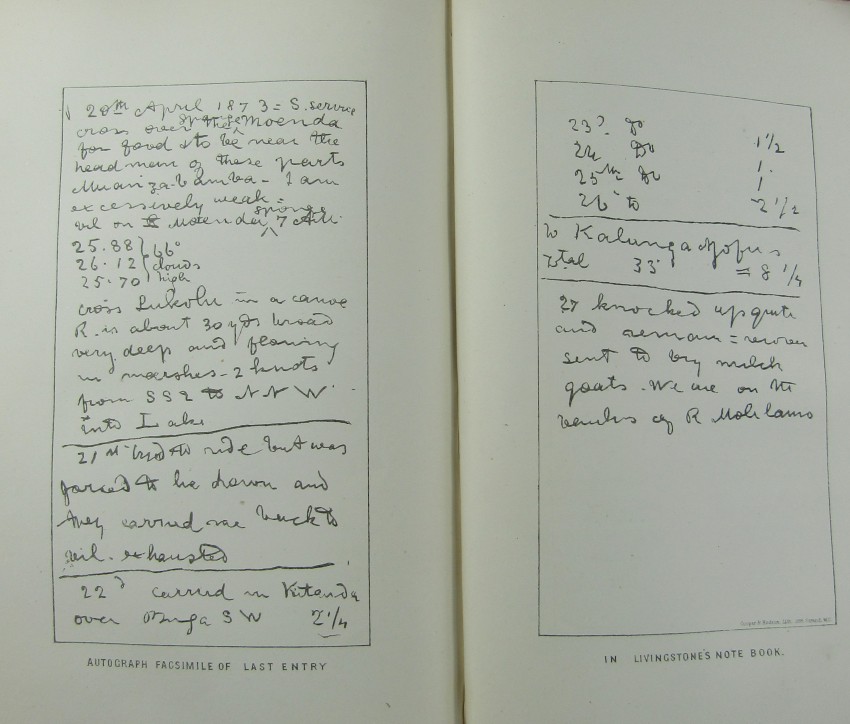 20th April 1873 = S. service
cross over the sponge Moenda
for food & to be near the
head man of these parts
Muanza-bamba - I am
excessively weak =
vil on Moenda sponge 7 AM.
25.88 } 66°
26.12 { clouds
25.70 } high
cross Lukolu in a canoe
R. is about 30 yds broad
very deep and flowing
in marshes - 2 knots
from SSE to NNW
into Lake
21st tried to ride but was
forced to lie down and
they carried me back to
vil. exhausted
22d carried in Kitanda
over Buga SW 2 1/4
AUTOGRAPH FACSIMILE OF LAST ENTRY
23d do 1 1/2
24 do 1.
25th do 1
26 to 2 1/2
to Kalunganjofu's
total 33 = 8 1/4
27 knocked up quite
and remain = recover
sent to buy milch
goats. We are on the
banks of R Molilamo
IN LIVINGSTONE'S NOTE BOOK.